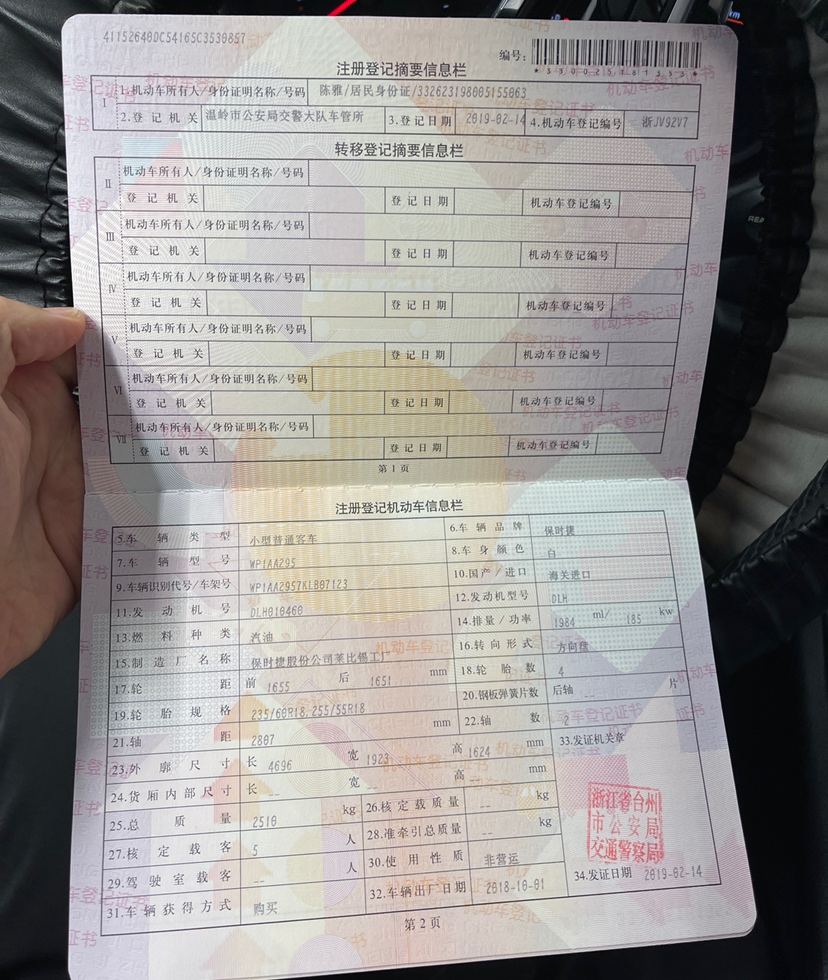 41152640DC54165C3530857
编号:
*330025181353*
注册登记摘要信息栏
I 1.机动车所有人/身份证明名称/号码 陈雅/居民身份证/332623198005155063
2.登记机关 温岭市公安局交警大队车管所 3.登记日期 2019-02-14 4.机动车登记编号 浙JV92V7
转移登记摘要信息栏
II 机动车所有人/身份证明名称/号码
登记机关 登记日期 机动车登记编号
III 机动车所有人/身份证明名称/号码
登记机关 登记日期 机动车登记编号
IV 机动车所有人/身份证明名称/号码
登记机关 登记日期 机动车登记编号
V 机动车所有人/身份证明名称/号码
登记机关 登记日期 机动车登记编号
VI 机动车所有人/身份证明名称/号码
登记机关 登记日期 机动车登记编号
VII 机动车所有人/身份证明名称/号码
登记机关 登记日期 机动车登记编号
第1页
注册登记机动车信息栏
5.车辆类型 小型普通客车 6.车辆品牌 保时捷
7.车辆型号 WP1AA295 8.车身颜色 白
9.车辆识别代号/车架号 WP1AA2957KLB07123 10.国产/进口 海关进口
11.发动机号 DLH010460 12.发动机型号 DLH
13.燃料种类 汽油 14.排量/功率 1984 ml/ 185 kw
15.制造厂名称 保时捷股份公司莱比锡工厂 16.转向形式 方向盘
17.轮距 前 1655 后 1651 mm 18.轮胎数 4
19.轮胎规格 235/60R18,255/55R18 20.钢板弹簧片数 后轴 -- 片
21.轴距 2807 mm 22.轴数 2
23.外廓尺寸 长 4696 宽 1923 高 1624 mm 33.发证机关章
24.货厢内部尺寸 长 -- 宽 -- 高 -- mm
25.总质量 2510 kg 26.核定载质量 -- kg
27.核定载客 5 人 28.准牵引总质量 -- kg
29.驾驶室载客 -- 人 30.使用性质 非营运
31.车辆获得方式 购买 32.车辆出厂日期 2018-10-01
浙江省台州
市公安局
交通警察局
34.发证日期 2019-02-14
第2页